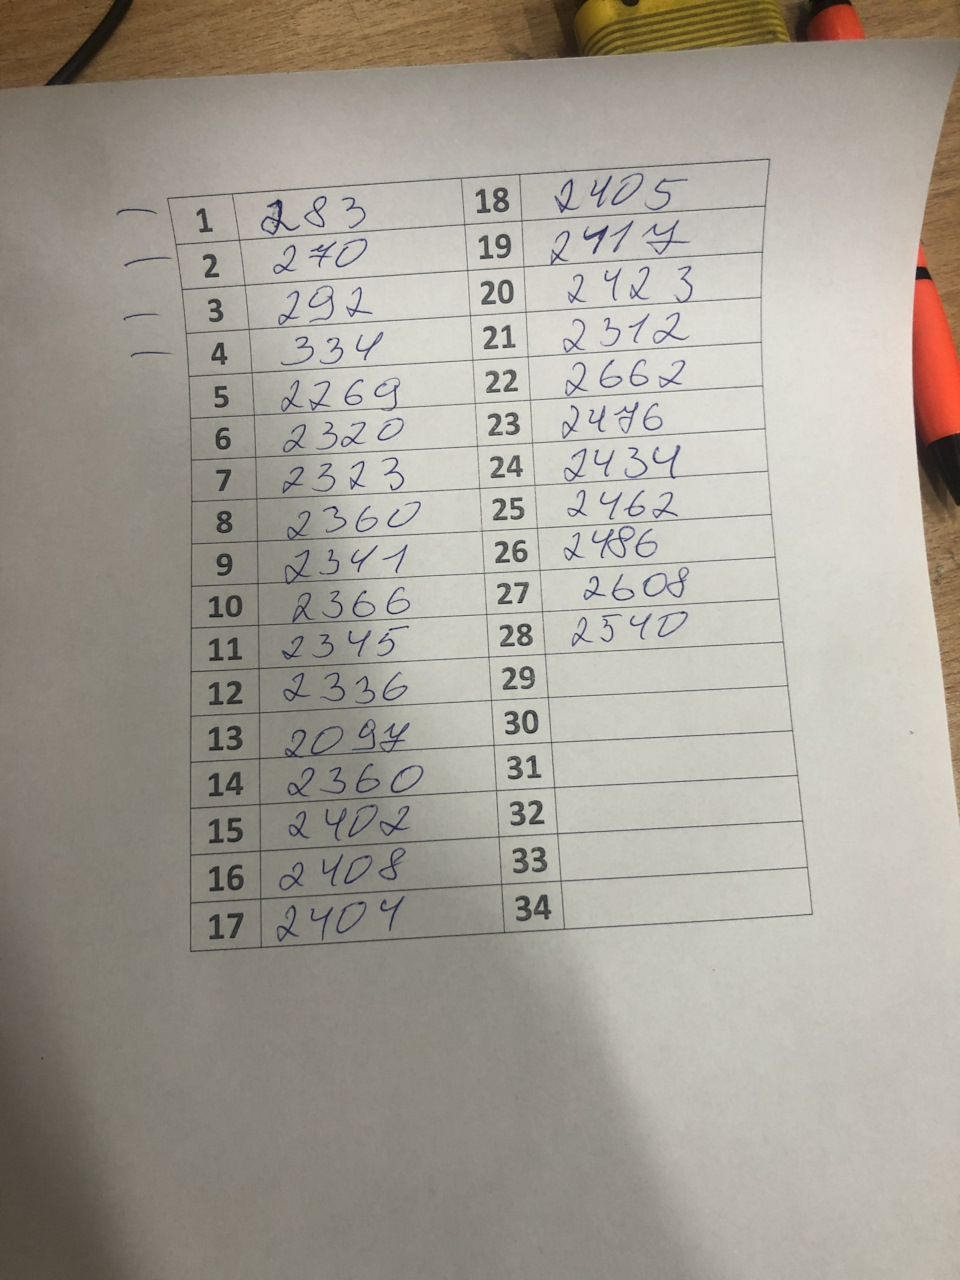 — 1 283 18 2405
— 2 270 19 2417
— 3 292 20 2423
— 4 334 21 2312
5 2269 22 2662
6 2320 23 2476
7 2323 24 2434
8 2360 25 2462
9 2341 26 2486
10 2366 27 2608
11 2345 28 2540
12 2336 29
13 2097 30
14 2360 31
15 2402 32
16 2408 33
17 2404 34